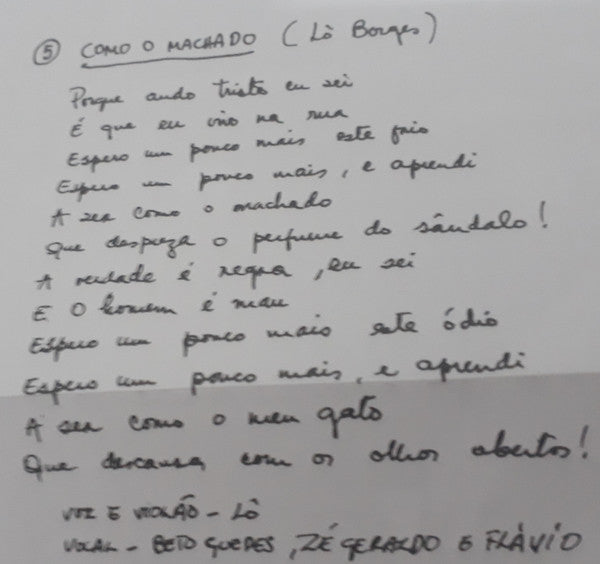 ⑤ COMO O MACHADO (Lô Borges)
Porque ando triste eu sei
É que eu vivo na rua
Espero um pouco mais este frio
Espero um pouco mais, e aprendi
A ser como o machado
Que despreza o perfume do sândalo!
A verdade é negra, eu sei
E O homem é mau
Espero um pouco mais este ódio
Espero um pouco mais, e aprendi
A ser como o meu gato
Que descansa com os olhos abertos!
VOZ E VIOLÃO - LÔ
VOCAL - BETO GUEDES, ZÉ GERALDO E FLÁVIO